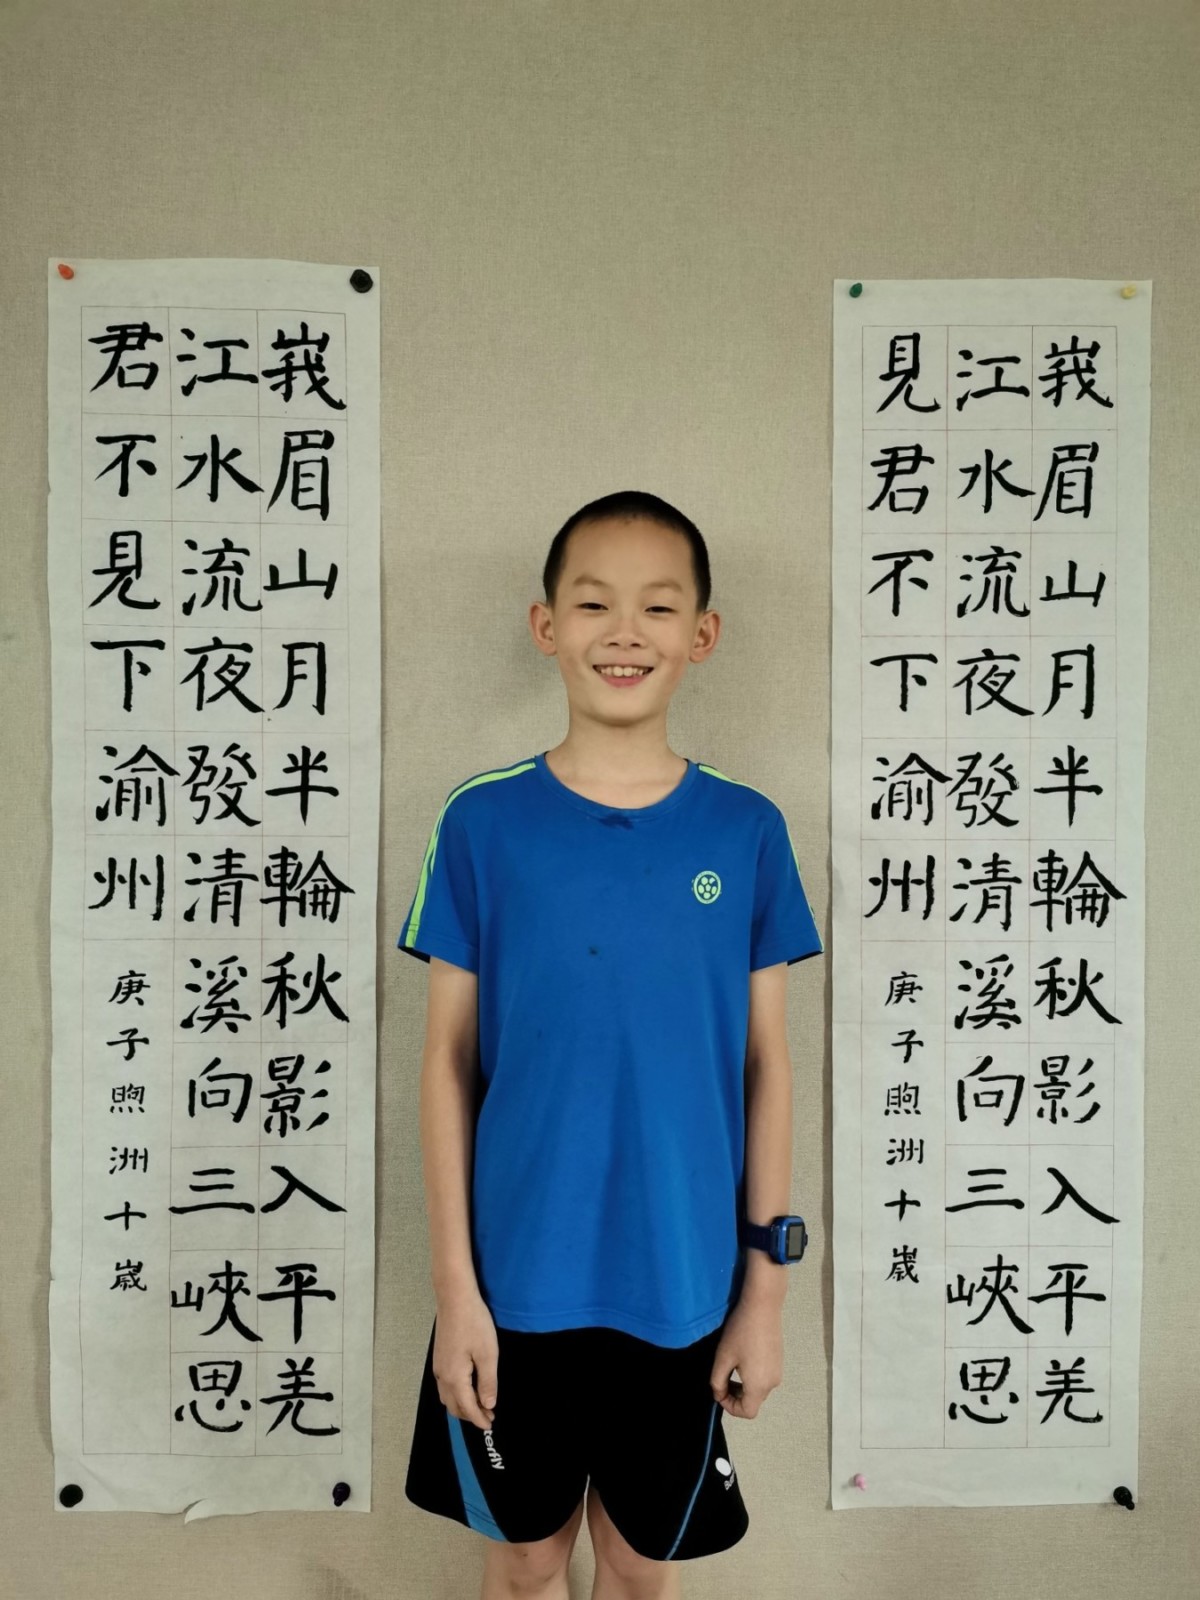 峩眉山月半輪秋影入平羌
江水流夜發清溪向三峽思
見君不下渝州
庚子煦洲十歲
峩眉山月半輪秋影入平羌
江水流夜發清溪向三峽思
君不見下渝州
庚子煦洲十歲
terfly